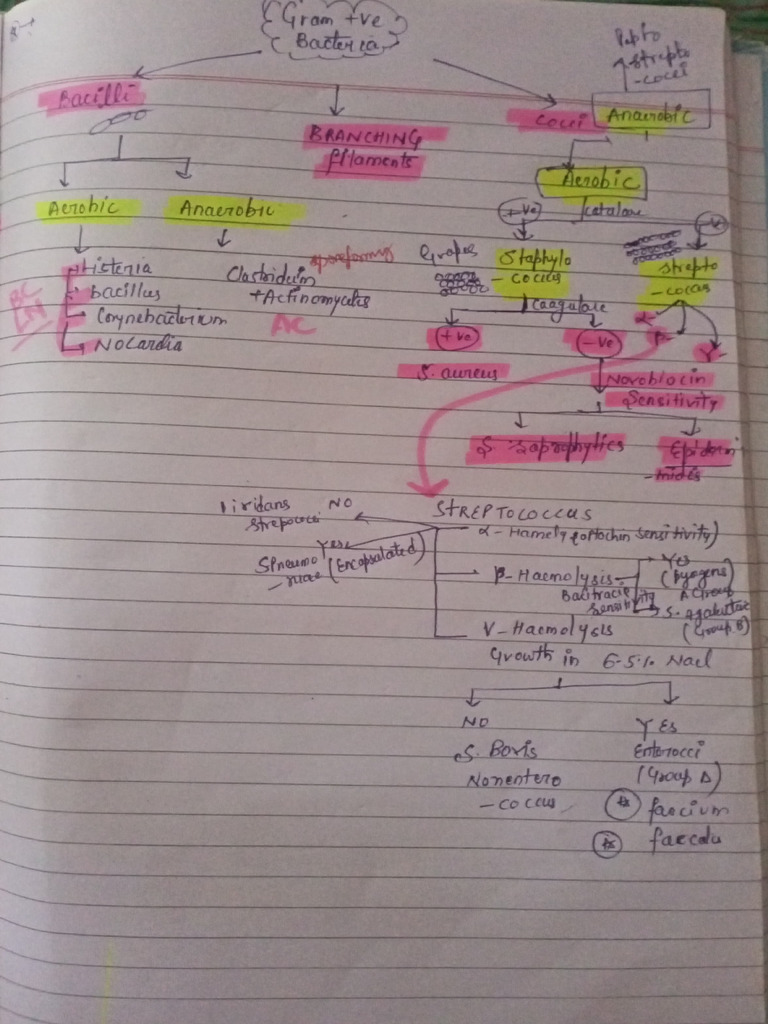 Gram +ve
Bacteria
Pepto
strepto
-cocci
Bacilli
BRANCHING
filaments
cocci
Anaerobic
Aerobic
+ve
catalase
-ve
Aerobic
Anaerobic
Grapes
Staphylo
-coccus
strepto
-coccus
Listeria
bacillus
Corynebacterium
Nocardia
Clostridium
sporeforming
+Actinomycetes
AC
coagulase
+ve
-ve
α-
β-
γ-
S. aureus
Novobiocin
Sensitivity
S. saprophytics
Epidermi
-mides
STREPTOCOCCUS
Viridans
NO
strepococci
α-Hamely (optochin sensitivity)
YES
S pneumo
-niae
(Encapsulated)
β-Haemolysis
Bacitracin
sensitivity
Yes
(pyogens)
A Group
S. agalactae
(Group B)
V-Haemolysis
Growth in 6.5% Nacl
NO
YES
S. Bovis
Nonentero
-coccus
Enterocci
(Group D)
faecium
faecalu